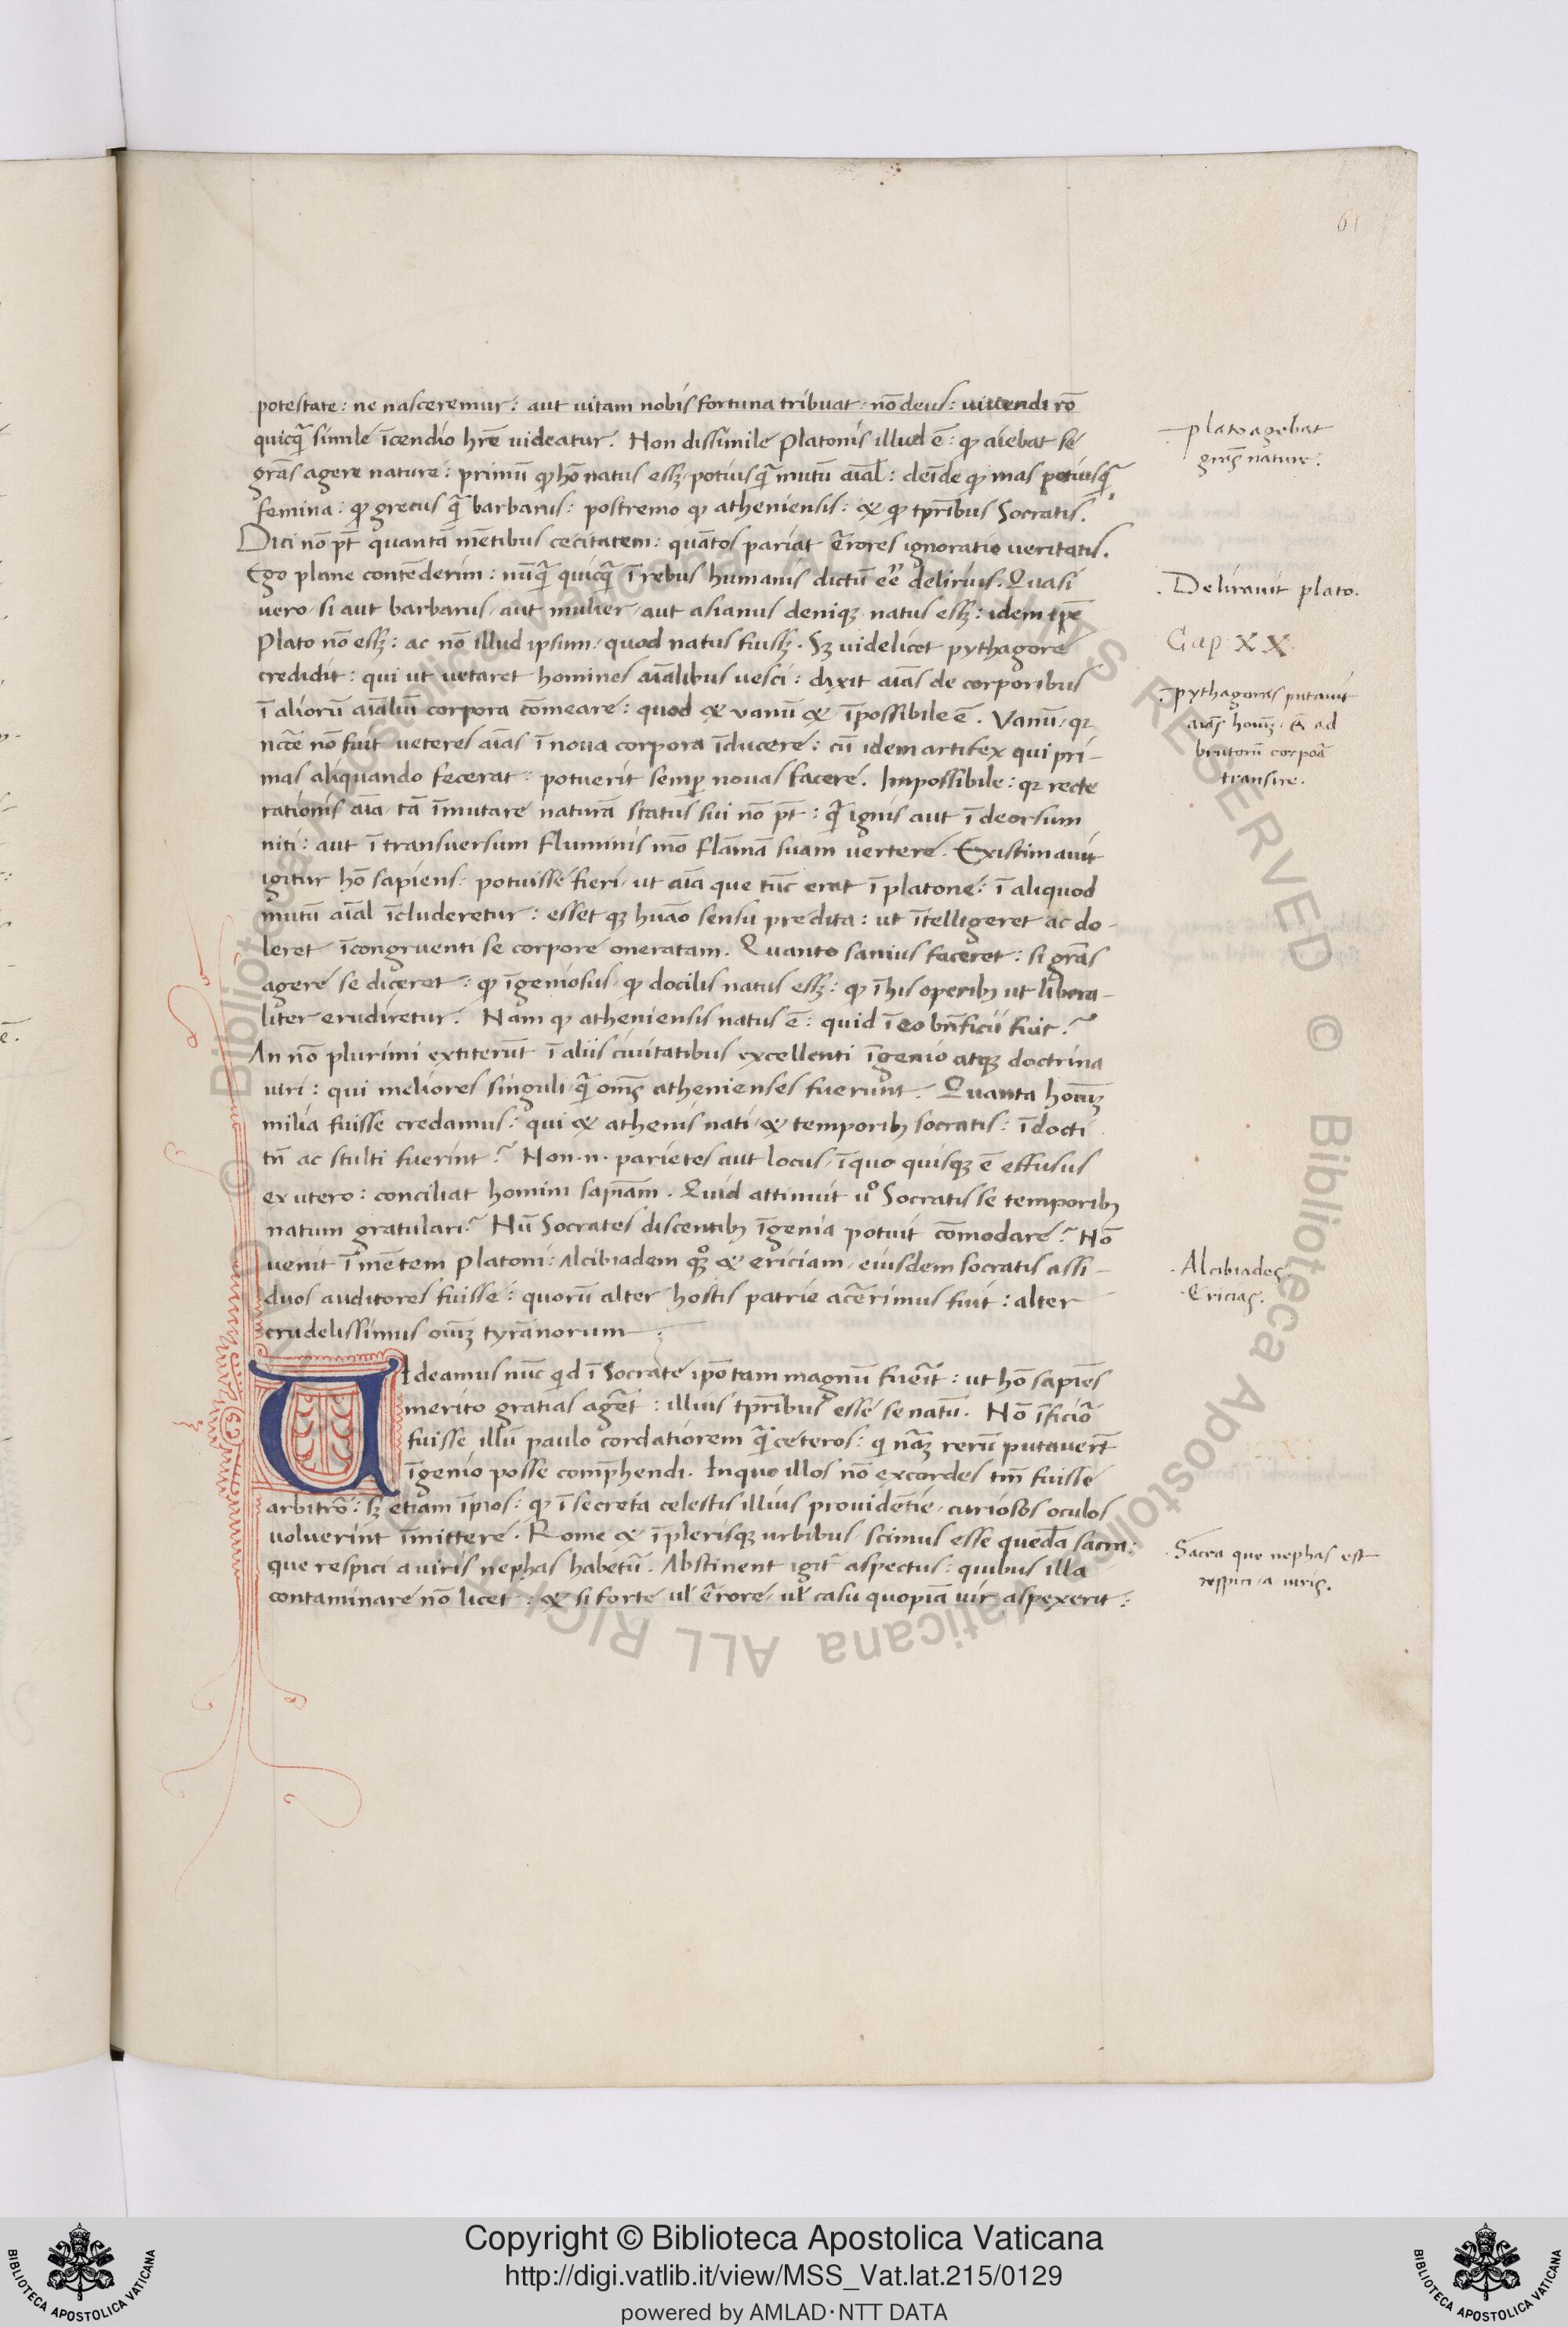 61
potestate: ne nasceremur: aut uitam nobis fortuna tribuat: nō deus: uiuendi rō
quicq̄ simile ī cendio hr̄e uideatur. Non dissimile Platonis illud ē: qꝫ aiebat se
gr̄as agere nature: primū qꝫ hō natus essꝫ potiusq̄ mutū aīal: deīde qꝫ mas potiusq̄
femina: qꝫ grecus q̄ barbarus: postremo qꝫ atheniensis: & qꝫ tp̄ribus Socratis.
Dici nō pt̄ quantā mētibus cecitatem: quātos pariat ērores ignoratio ueritatis.
Ego plane contēderim: nūq̄ quicq̄ ī rebus humanis dictū eē delirius. Quasi
uero si aut barbarus, aut mulier, aut asianus deniqꝫ natus essꝫ: idem ip̄e
Plato nō essꝫ: ac nō illud ipsum, quod natus fuissꝫ. Sꝫ uidelicet pythagore
credidit: qui ut uetaret homines aīalibus uesci: dixit aīas de corporibus
ī aliorū aīaliū corpora cōmeare: quod & vanū & īpossibile ē. Vanū: qꝛ
nc̄ē nō fuit ueteres aīas ī noua corpora īducere: cū idem artifex qui pri-
mas aliquando fecerat: potuerit semp̄ nouas facere. Impossibile: qꝛ recte
rationis aīa tā īmutare naturā status sui nō pt̄: q̄ ignis aut ī deorsum
niti: aut ī transuersum fluminis mō flāmā suam uertere. Existimauit
igitur hō sapiens: potuisse fieri, ut aīa que tūc erat ī platone: ī aliquod
mutū aīal īcluderetur: esset qꝫ huāo sensu predita: ut ītelligeret ac do-
leret īcongruenti se corpore oneratam. Quanto sanius faceret: si gr̄as
agere se diceret: qꝫ īgeniosus, qꝫ docilis natus essꝫ: qꝫ ī his operibꝫ ut libera-
liter erudiretur. Nam qꝫ atheniensis natus ē: quid ī eo bn̄ficii fuit?
An nō plurimi extiterūt ī aliis ciuitatibus excellenti īgenio atqꝫ doctrina
uiri: qui meliores singuli q̄ om̄s athenienses fuerunt. Quanta hoīuꝫ
milia fuisse credamus: qui & athenis nati, & temporibꝫ socratis: īdocti
tn̄ ac stulti fuerint? Non .n. parietes aut locus, ī quo quisqꝫ ē effusus
ex utero: conciliat homini sapīam. Quid attinuit uº Socratis se temporibꝫ
natum gratulari? Nū Socrates discentibꝫ īgenia potuit cōmodare? Nō
uenit ī mētem Platoni: Alcibiadem qꝫº & ericiam, eiusdem socratis assi-
duos auditores fuisse: quorū alter hostis patrie acērimus fuit: alter
crudelissimus oīuꝫ tyrānorum
UIdeamus nūc qid ī Socrate ip̄o tam magnū fuerīt: ut hō sapiēs
merito gratias agēt: illius tp̄ribus esse se natū. Nō īficiō
fuisse illū paulo cordatiorem q̄ ceteros: qi nāꝫ rerū putauerīt
īgenio posse comp̄hendi. In quo illos nō excordes tm̄ fuisse
arbitrō: sꝫ etiam īpios: qꝫ ī secreta celestis illius prouidētie, curiosos oculos
uoluerint īmittere. Rome & ī plerisqꝫ urbibus, scimus esse quedā sacra:
que respici a uiris nephas habetū. Abstinent igit̄ aspectus: quibus illa
contaminare nō licet: & si forte ul̄ ērore, ul̄ casu quopiā uir aspexerit:
plato agebat
gr̄as nature.
Delirauit plato.
Cap XX.
pythagoras putauit
aīas hoīuꝫ. & ad
brutorū corpoā
transire.
Alcibiades
Ericias.
Sacra que nephas est
respici a uiris.
© Biblioteca Apostolica Vaticana ALL RIGHTS RESERVED
© Biblioteca Apostolica Vaticana ALL RIGHTS RESERVED
BIBLIOTECA APOSTOLICA VATICANA
Copyright © Biblioteca Apostolica Vaticana
http://digi.vatlib.it/view/MSS_Vat.lat.215/0129
powered by AMLAD·NTT DATA
BIBLIOTECA APOSTOLICA VATICANA